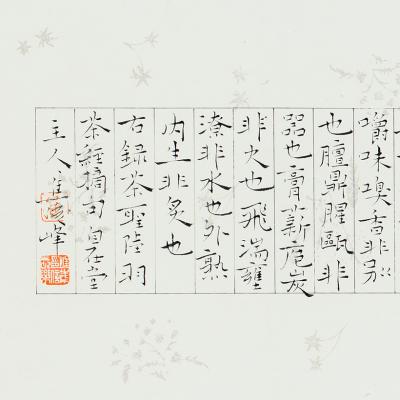 嚼味嗅香非别
也膻鼎腥甌非
器也膏薪庖炭
非火也飛湍壅
潦非水也外熟
内生非炙也
右錄茶聖陸羽
茶經摘句自在堂
主人峰